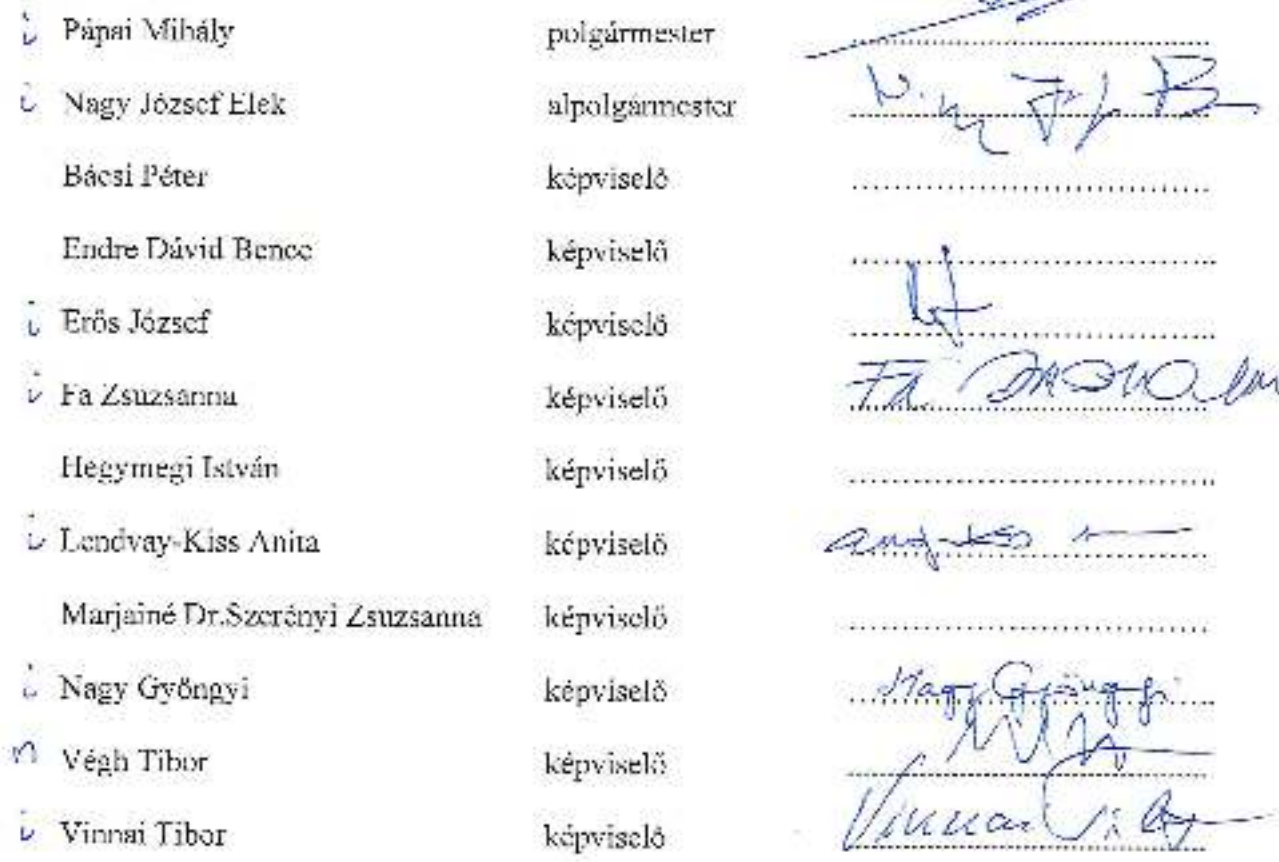 i Pápai Mihály polgármester
i Nagy József Elek alpolgármester
Bácsi Péter képviselő
Endre Dávid Bence képviselő
i Erős József képviselő
i Fa Zsuzsanna képviselő Fa
Hegymegi István képviselő
i Lendvay-Kiss Anita képviselő
Marjainé Dr.Szerényi Zsuzsanna képviselő
i Nagy Gyöngyi képviselő Nagy Gyöngyi
n Végh Tibor képviselő
i Vinnai Tibor képviselő Vinnai Tibor